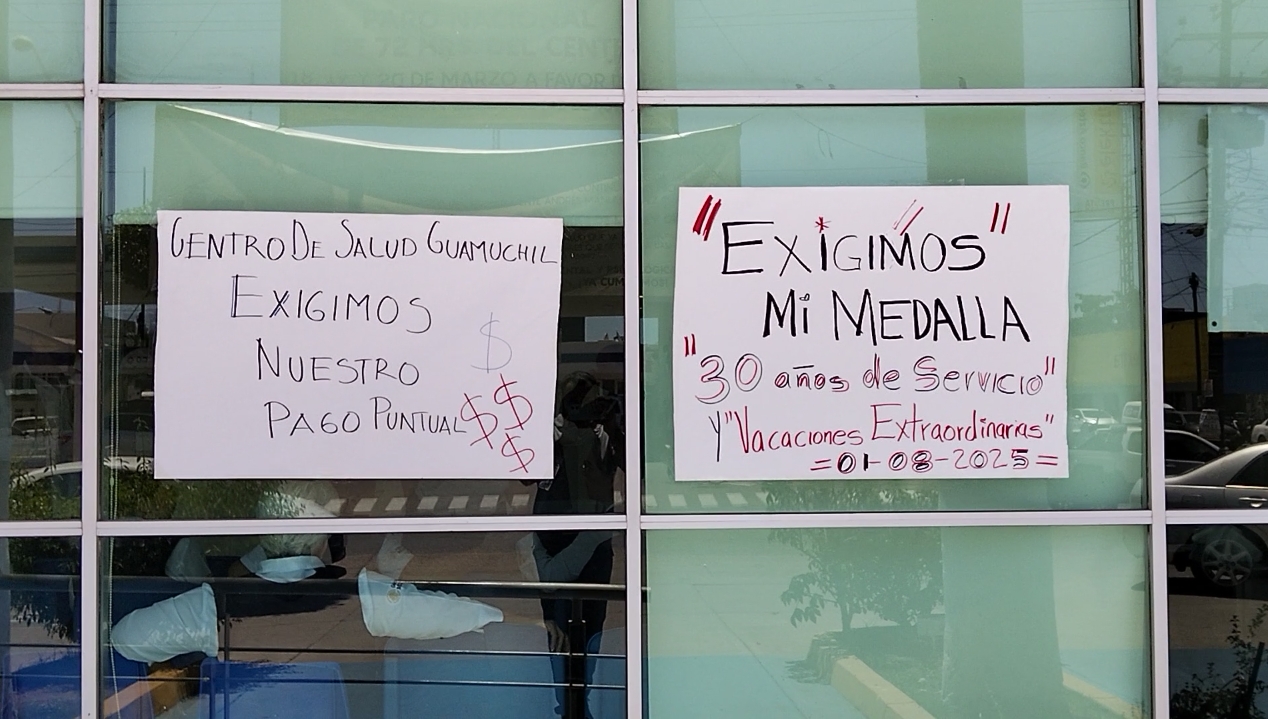 CENTRO DE SALUD GUAMUCHIL
EXIGIMOS
NUESTRO $
PAGO PUNTUAL $$
$
"EXIGIMOS"
Mi MEDALLA
"30 años de Servicio"
y "Vacaciones Extraordinarias"
=01-08-2025=
DE MARZO A FAVOR